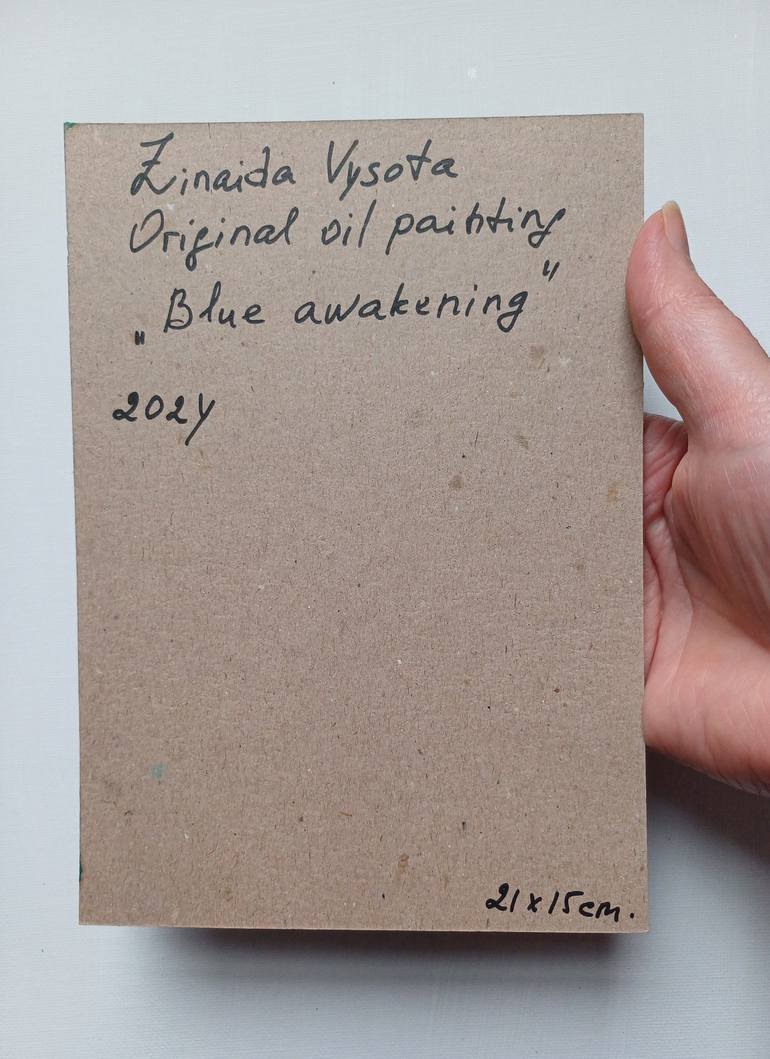 Zinaida Vysota
Original oil painting
„Blue awakening"
2024
21x15cm.